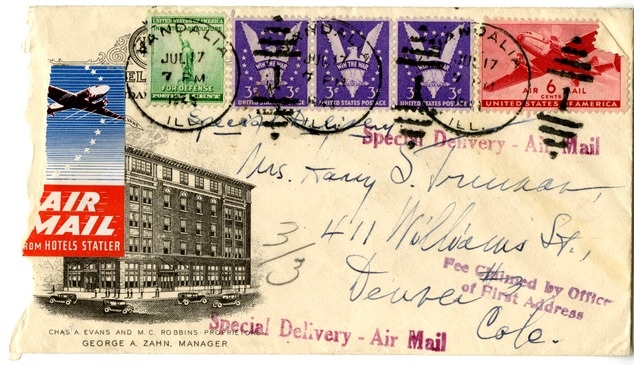 UNITED STATES OF AMERICA
INDUSTRY AGRICULTURE
FOR DEFENSE
WIN THE WAR
3¢ 3¢
UNITED STATES POSTAGE
WIN THE WAR
3¢ 3¢
UNITED STATES POSTAGE
WIN THE WAR
3¢ 3¢
UNITED STATES POSTAGE
AIR 6 MAIL
CENTS
UNITED STATES OF AMERICA
VANDALIA
JUL 17
7 PM
ILL.
VANDALIA
JUL 17
ILL.
VANDALIA
JUL 17
ILL.
EL
DA
AIR
MAIL
FROM HOTELS STATLER
Special Delivery
Special Delivery - Air Mail
Mrs. Harry S. Truman,
411 Williams St.,
Denver
Colo.
3/3
Fee Claimed by Office
of First Address
Special Delivery - Air Mail
CHAS. A. EVANS AND M. C. ROBBINS PROPRIETORS
GEORGE A. ZAHN, MANAGER